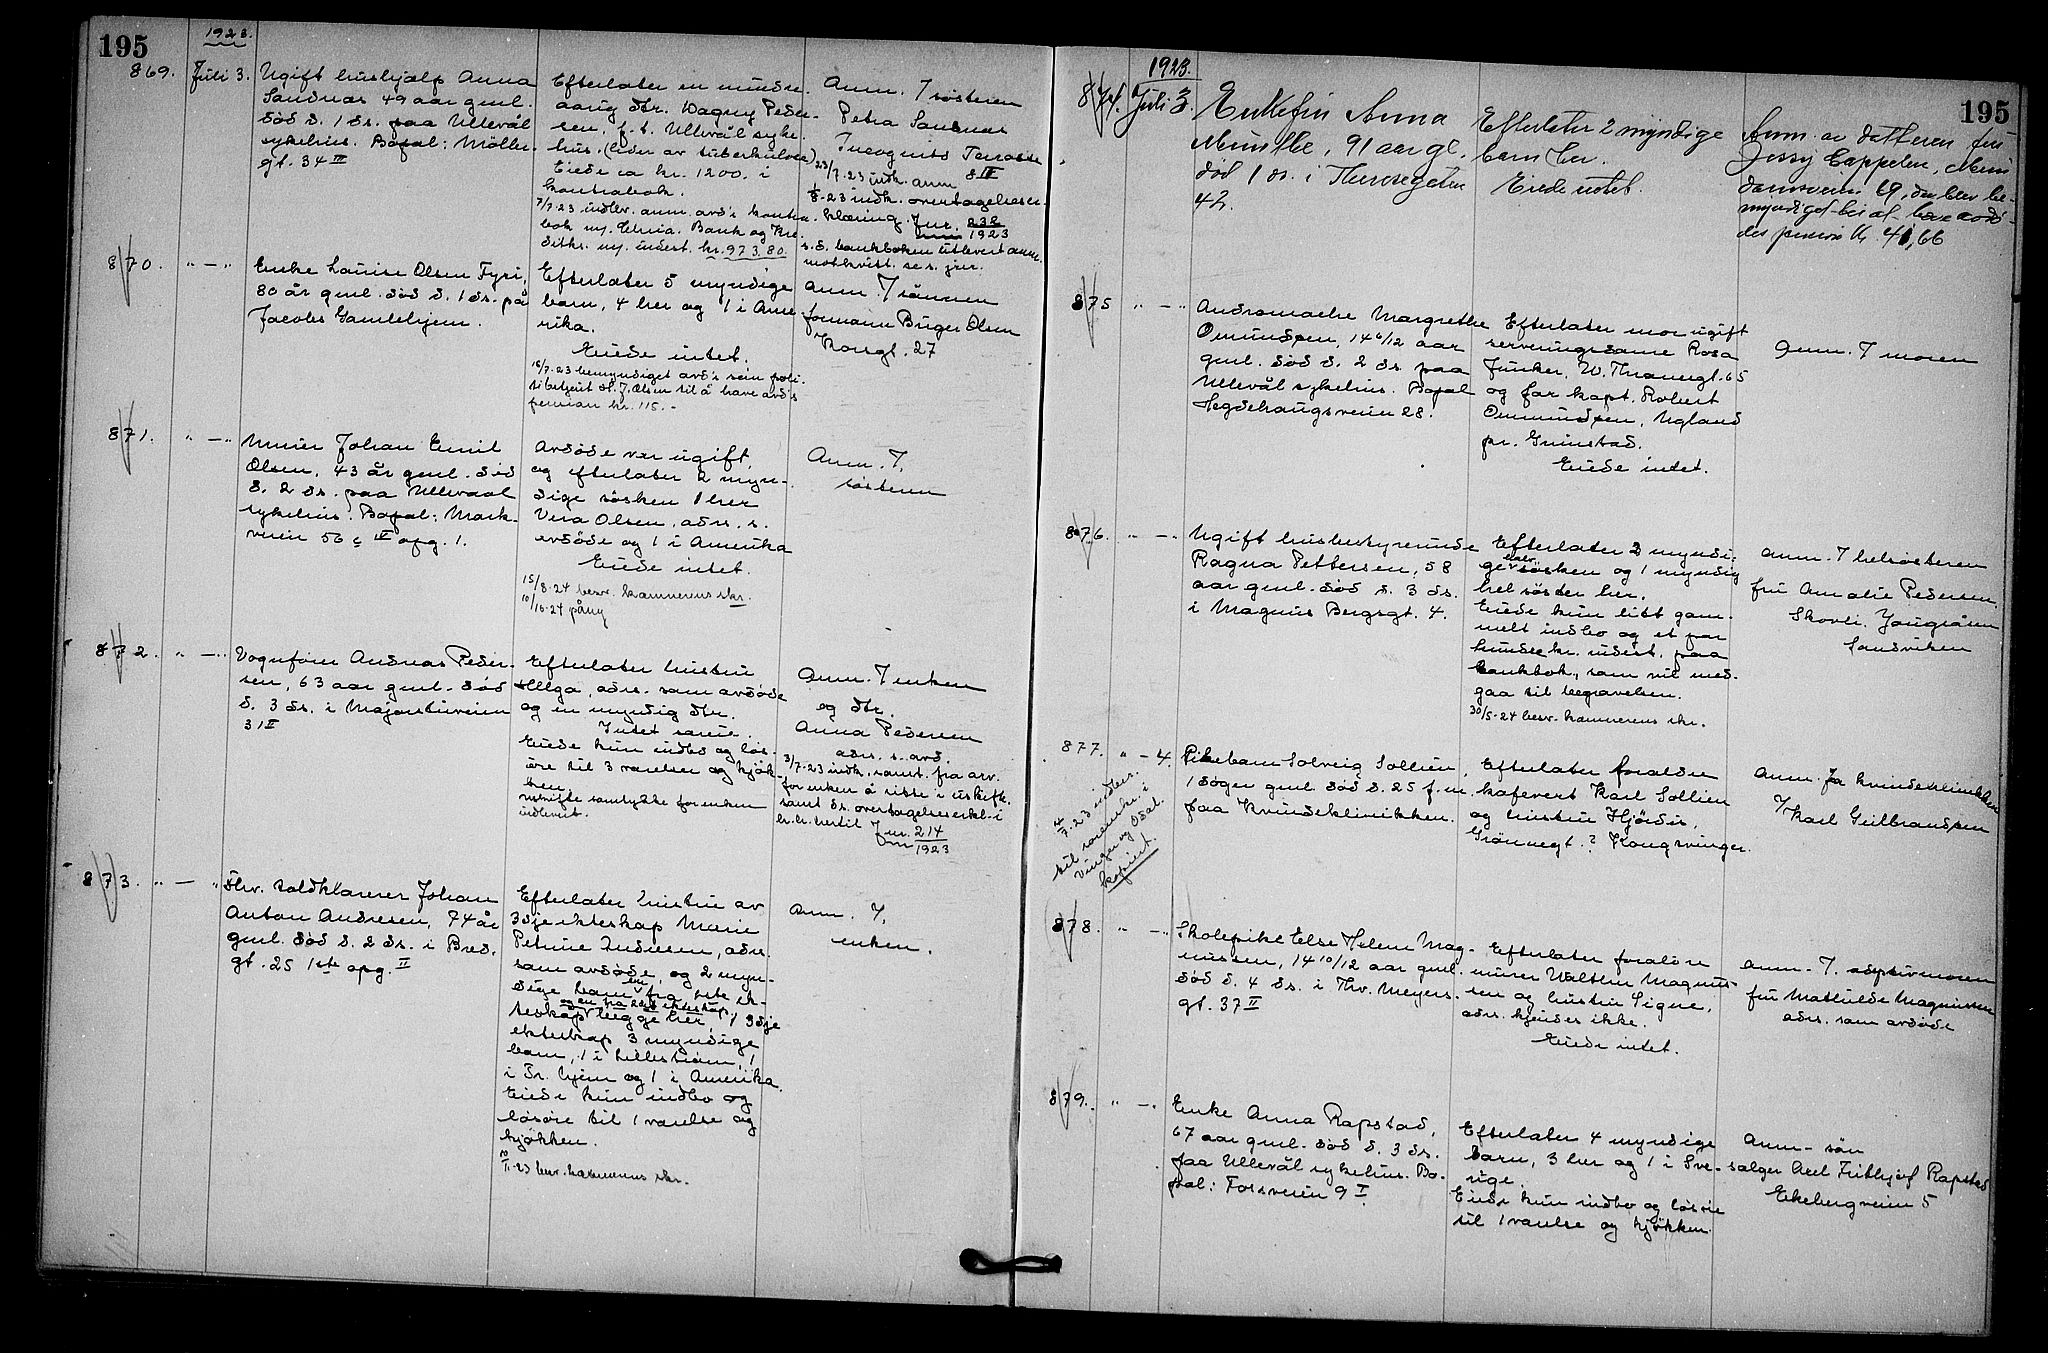 195
1923.
869. Juli 3. Ugift hushjælp Anna
Sandnæs 49 aar gml.
død d. 1 ds. paa Ullevål
sykehus. Bopæl: Möller-
gt. 34 III
Efterlater en mindre-
aarig dtr. Dagny Peder-
sen, f. t. Ullevål syke-
hus. (lider av tuberkulose)
Eiede ca kr. 1200. i
kontrabok.
7/7.23 indlev. anm. avd's kontra-
bok
Bank og Kre-
ditks. indest. kr. 973.80.
Anm. 7 søsteren
Petra Sandnæs
Incognito Terrasse
8 III
23/7.23 indk. anm
8.23 indk. overtagelseser-
klæring. Jnr. 232
1923
s. d. bankboken utlevert anm.
mot kvitt. se s. jnr.
870. " — " Enke Louise Olsen Fyri,
80 år gml. død d. 1 ds. på
Jacobs Gamlehjem.
Efterlater 5 myndige
barn, 4 her og 1 i Ame-
rika.
Eiede intet.
16/7.23 bemyndiget avd's søn poli-
tibetjent H. J. Olsen til å hæve avd's
pension kr. 115.-
Anm. 7 sönnen
formann Birger Olsen
Korsgt. 27
871. " — " Murer Johan Emil
Olsen, 43 år gml. död
d. 2 ds. paa Ullevaal
sykehus. Bopæl: Mark-
veien 56 c IV opg. 1.
Avdöde var ugift,
og efterlater 2 myn-
dige søsken 1 her
Vera Olsen, adrs. s.
avdöde og 1 i Amerika
Eiede intet.
15/8.24 besv. kæmnerens skr.
10/10-24 påny
Anm. 7.
søsteren
872. " — " Vognfører Andreas Peder-
sen, 63 aar gml. död
d. 3 ds. i Majorstuveien
31 II
Efterlater hustru
Helga, adrs. som avdöde
og en myndig dtr.
Intet særeie.
Eiede kun indbo og løs-
öre til 3 værelser og kjök-
ken
utskrifte samtykke for enken
indlevert.
Anm. 7 enken
og dtr.
Anna Pedersen
adrs. s. avd.
3/7.23 indk. samt. fra arv.
for enken å sitte i uskifte.
samt ds. overtagelseserkl. i
Jnr. 214
1923
873. " — " Fhv. toldklarerer Johan
Anton Andresen, 74 år
gml. død d. 2 ds. i Bred-
gt. 25 1ste opg. II
Efterlater hustru av
3dje ekteskap Marie
Petrine Andresen, adrs.
som avdöde, og 2 myn-
dige barn, en fra 1ste ek-
teskap og en fra 2det ekteskap,
begge her, 1 3dje
ekteskap 3 myndige
barn, 1 i Lilleström, 1
i Tr.hjem og 1 i Amerika.
Eiede kun indbo og
løsöre til 1 værelse og
kjökken.
10/11.23 besv. kæmnerens skr.
Anm. 7.
enken.
195
1923.
874. Juli 3. Enkefru Anna
Munthe, 91 aar gl.
död 1 ds. i Theresegaten
42.
Efterlater 2 myndige
barn her.
Eiede intet.
Anm. av datteren fru
Jessy Cappelen,
19, der blev be-
myndiget til at hæve avdö-
des pension Kr. 41,66
875 " — " Andromache Margrethe
Omundsen, 14 6/12 aar
gml. död d. 2 ds. paa
Ullevål sykehus. Bopæl
Hegdehaugsveien 28.
Efterlater mor ugift
serveringsdame Rosa
Junker, W. Thranesgt. 65
og far kapt. Robert
Ommundsen, Ugland
pr. Grimstad.
Eiede intet.
Anm. 7 moren
876. " — " Ugift husbestyrerinde
Ragna Pettersen, 58
aar gml. död d. 3 ds.
i Magnus Bergsgt. 4.
Efterlater 2 myndi-
ge halvsøsken og 1 myndig
helsøster her.
Eiede kun litt gam-
melt indbo og et par
hundre kr. indest. paa
bankbok, som vil med-
gaa til begravelsen.
30/5-24 besv. kæmnerens skr.
Anm. 7 helsøsteren
fru Amalie Pedersen
Skovli, Jongsåsen
Sandviken
877. " — 4. Pikebarn Solveig Sollien,
1 døger gml. död d. 25 f. m.
paa Kvindeklinikken.
4/7.23 indber.
til sorenskr. i
Vinger og Odal.
kopiert.
Efterlater forældre
kafevert Karl Sollien
og hustru Hjördis,
Grönnegt. ? Kongsvinger.
Anm. fra kvindeklinikken
7/ Karl Gulbrandsen
878. " — " Skolepike Else Helene Mag-
nussen, 14 10/12 aar gml.
död d. 4 ds. i Thv. Meyers-
gt. 37 II
Efterlater forældre
murer Walther Magnus-
sen og hustru Signe,
adrs. kjendes ikke.
Eiede intet.
Anm. 7. adoptivmoren
fru Mathilde Magnussen
adrs. som avdöde
879. " — " Enke Anna Rapstad,
67 aar gml. död d. 3 ds.
paa Ullevål sykehus. Bo-
pæl: Forsveien 9 I
Efterlater 4 myndige
barn, 3 her og 1 i Sve-
rige.
Eiede kun indbo og løsöre
til 1 værelse og kjøkken.
Anm - søn
sælger Axel Fridtjof Rapstad
Ekebergveien 5